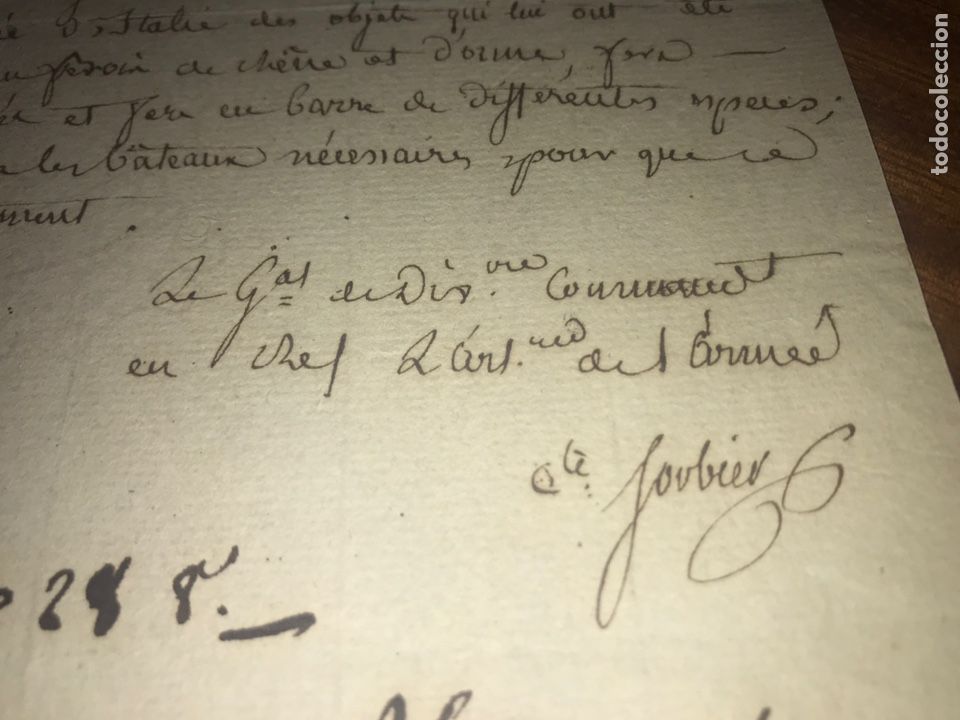 d'Italie des objets qui lui ont été
de chêne et d'orme, fera —
et fers en barre de différentes especes;
les bâteaux nécessaires pour que ce
Le Gal de Divon Commandt
en chef l'artrie de l'armée
Cte Sorbier
28
todocoleccion